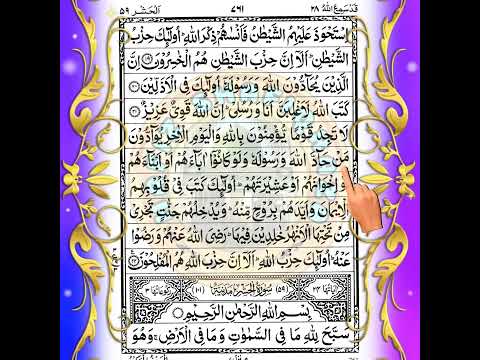 قَدْ سَمِعَ اللهُ ٢٨ ٧٦١ اَلْحَشْر ٥٩
اِسْتَحْوَذَ عَلَيْهِمُ الشَّيْطٰنُ فَاَنْسٰىهُمْ ذِكْرَ اللهِ ؕ اُولٰٓئِكَ حِزْبُ
الشَّيْطٰنِ ؕ اَلَاۤ اِنَّ حِزْبَ الشَّيْطٰنِ هُمُ الْخٰسِرُوْنَ ۝۱۹ اِنَّ
الَّذِيْنَ يُحَآدُّوْنَ اللهَ وَرَسُوْلَهٗۤ اُولٰٓئِكَ فِى الْاَذَلِّيْنَ ۝۲۰
كَتَبَ اللهُ لَاَغْلِبَنَّ اَنَا وَرُسُلِىْ ؕ اِنَّ اللهَ قَوِىٌّ عَزِيْزٌ ۝۲۱
لَا تَجِدُ قَوْمًا يُّؤْمِنُوْنَ بِاللهِ وَالْيَوْمِ الْاٰخِرِ يُوَآدُّوْنَ
مَنْ حَآدَّ اللهَ وَرَسُوْلَهٗ وَلَوْ كَانُوْۤا اٰبَآءَهُمْ اَوْ اَبْنَآءَهُمْ
اَوْ اِخْوَانَهُمْ اَوْ عَشِيْرَتَهُمْ ؕ اُولٰٓئِكَ كَتَبَ فِىْ قُلُوْبِهِمُ
الْاِيْمَانَ وَاَيَّدَهُمْ بِرُوْحٍ مِّنْهُ ؕ وَيُدْخِلُهُمْ جَنّٰتٍ تَجْرِىْ
مِنْ تَحْتِهَا الْاَنْهٰرُ خٰلِدِيْنَ فِيْهَا ؕ رَضِىَ اللهُ عَنْهُمْ وَرَضُوْا
عَنْهُ ؕ اُولٰٓئِكَ حِزْبُ اللهِ ؕ اَلَاۤ اِنَّ حِزْبَ اللهِ هُمُ الْمُفْلِحُوْنَ ۝۲۲
اٰيَاتُهَا ٢٤ (٥٩) سُوْرَةُ الْحَشْرِ مَدَنِيَّةٌ (١٠١) رُكُوْعَاتُهَا ٣
بِسْمِ اللهِ الرَّحْمٰنِ الرَّحِيْمِ
سَبَّحَ لِلّٰهِ مَا فِى السَّمٰوٰتِ وَمَا فِى الْاَرْضِ ۚ وَهُوَ